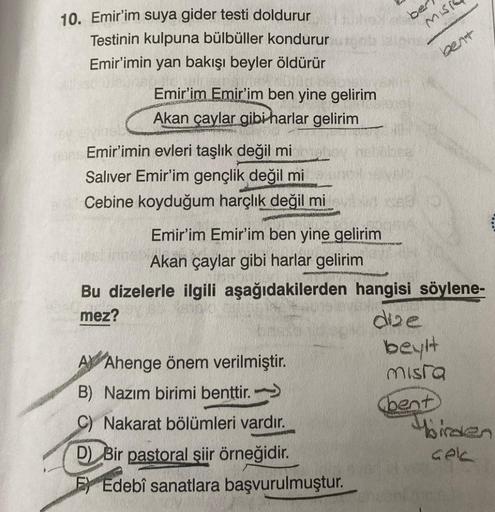 10. Emir'im suya gider testi doldurur
Testinin kulpuna bülbüller kondurur
Emir'imin yan bakışı beyler öldürür
Emir'im Emir'im ben yine gelirim
Akan çaylar gibi harlar gelirim
Emir'imin evleri taşlık değil mi
Salıver Emir'im gençlik değil mi
Cebine koyduğum harçlık değil mi
Emir'im Emir'im ben yine gelirim
Akan çaylar gibi harlar gelirim
Bu dizelerle ilgili aşağıdakilerden hangisi söylene-
mez?
A) Ahenge önem verilmiştir.
B) Nazım birimi benttir.
C) Nakarat bölümleri vardır.
D) Bir pastoral şiir örneğidir.
E) Edebî sanatlara başvurulmuştur.
bent
dize
beyit
mısra
bent
birden
çok